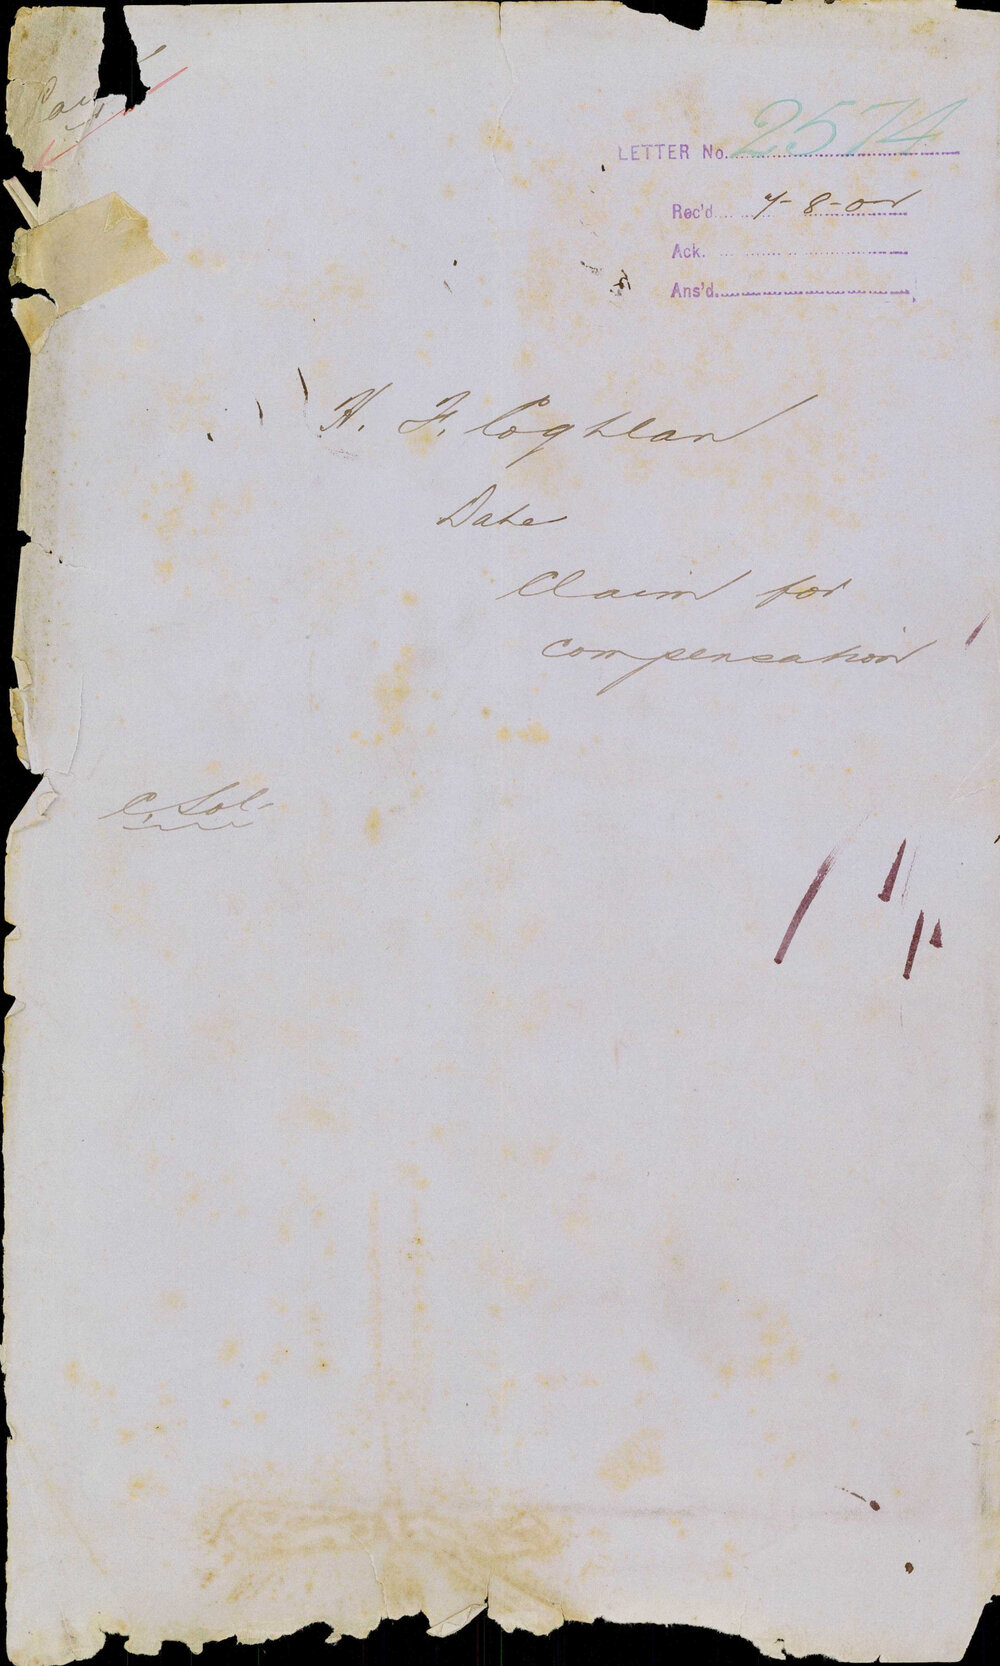 LETTER No. 2574
Rec'd. 7-8-02
Ack.
Ans'd.
H. F. Coghlan
Date
Claim for
compensation
C. Sol.